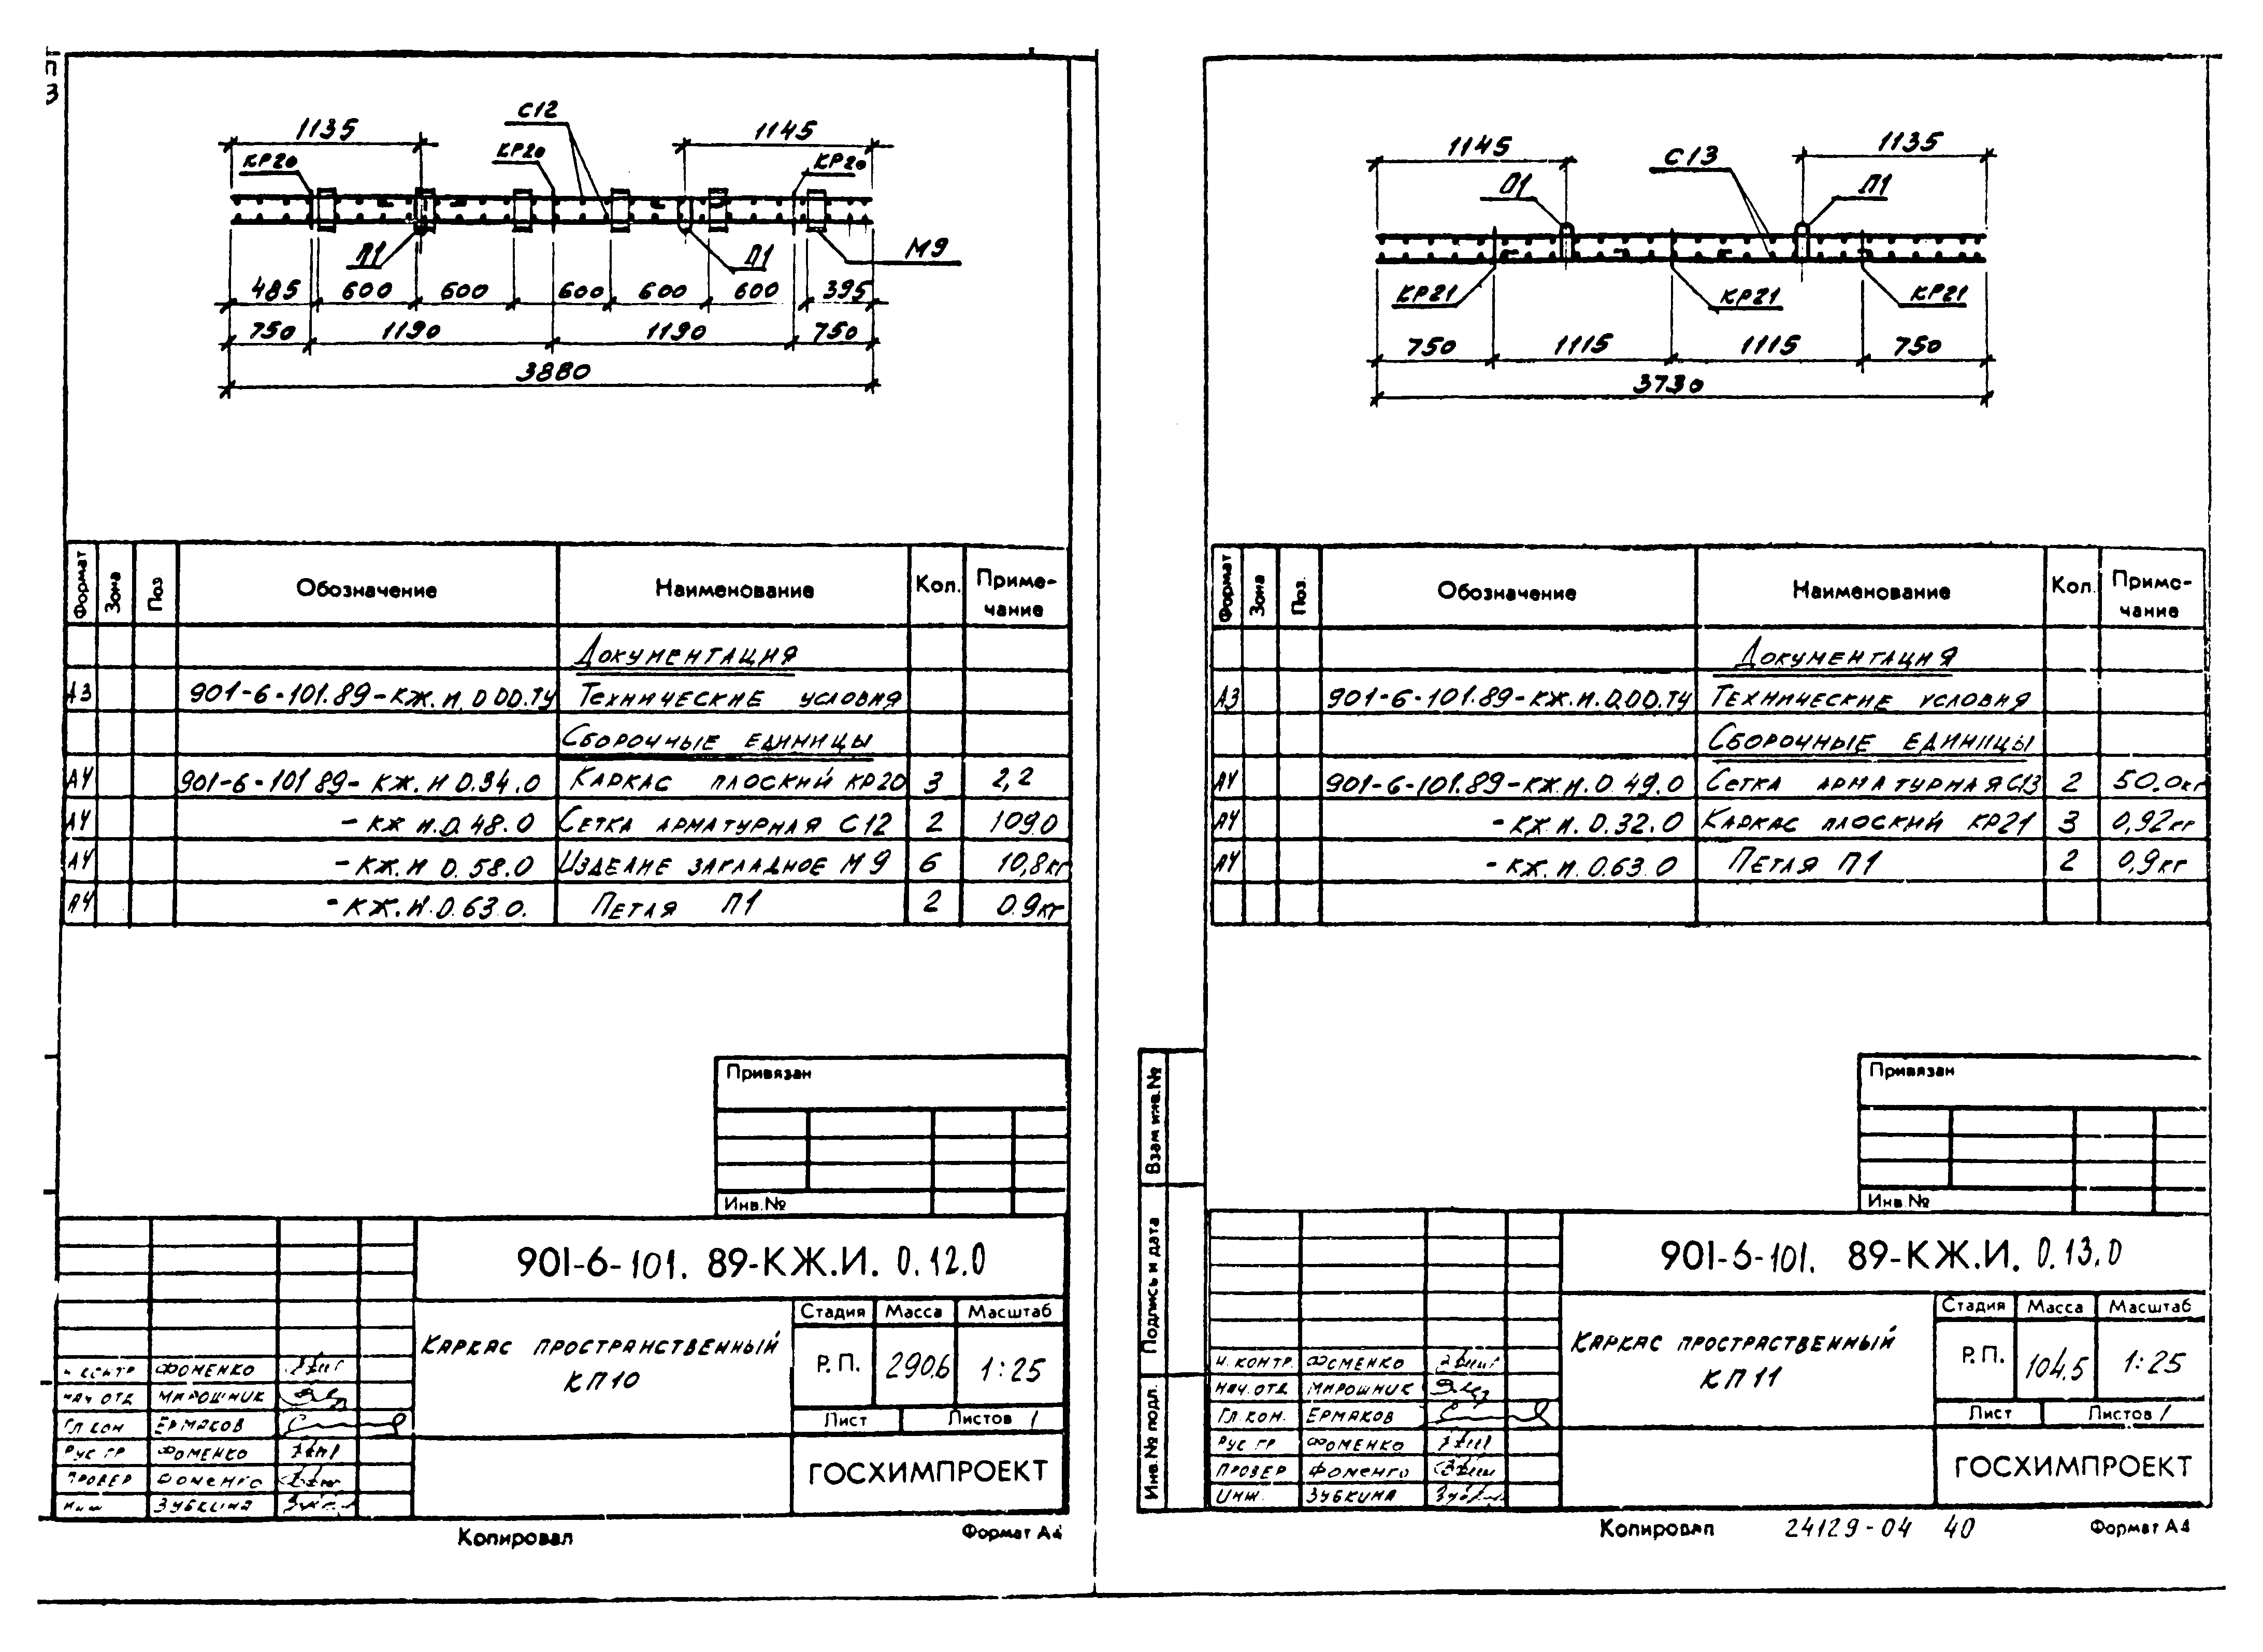 1135
С12
1145
КР20
КР20
КР20
П1
П1
М9
485 600 600 600 600 600 395
750 1190 1190 750
3880
Формат Зона Поз Обозначение Наименование Кол. Приме-
чание
Документация
А3 901-6-101.89-КЖ.И.0.00.ТУ Технические условия
Сборочные единицы
А4 901-6-101 89-КЖ.И 0.34.0 Каркас плоский КР20 3 2,2
А4 -КЖ И.0.48.0 Сетка арматурная С12 2 109.0
А4 -КЖ.И 0.58.0 Изделие закладное М9 6 10,8кг
А4 -КЖ.И.0.63 0. Петля П1 2 0.9кг
Привязан
Инв.№
901-6-101. 89-КЖ.И. 0.12.0
Каркас пространственный
КП10
Стадия Масса Масштаб
Р.П. 290.6 1:25
Лист Листов 1
ГОСХИМПРОЕКТ
Н контр Фоменко
Нач отд Мирошник
Гл кон Ермаков
Рук гр Фоменко
Провер Фоменко
Инж Зубкина
Копировал Формат А4
1145
С13
1135
П1
П1
КР21
КР21
КР21
750 1115 1115 750
3730
Формат Зона Поз. Обозначение Наименование Кол. Приме-
чание
Документация
А3 901-6-101.89-КЖ.И.0.00.ТУ Технические условия
Сборочные единицы
А4 901-6-101.89-КЖ.И.0.49.0 Сетка арматурная С13 2 50.0кг
А4 -КЖ.И.0.32.0 Каркас плоский КР21 3 0,92кг
А4 -КЖ.И.0.63 0 Петля П1 2 0,9кг
Привязан
Инв №
Взам инв.№
Подпись и дата
Инв.№ подл.
901-6-101. 89-КЖ.И. 0.13.0
Каркас простраственный
КП11
Стадия Масса Масштаб
Р.П. 104.5 1:25
Лист Листов 1
ГОСХИМПРОЕКТ
Н.контр. Фоменко
Нач.отд Мирошник
Гл.кон. Ермаков
Рук гр Фоменко
Провер Фоменко
Инж. Зубкина
Копировал 24129-04 40 Формат А4